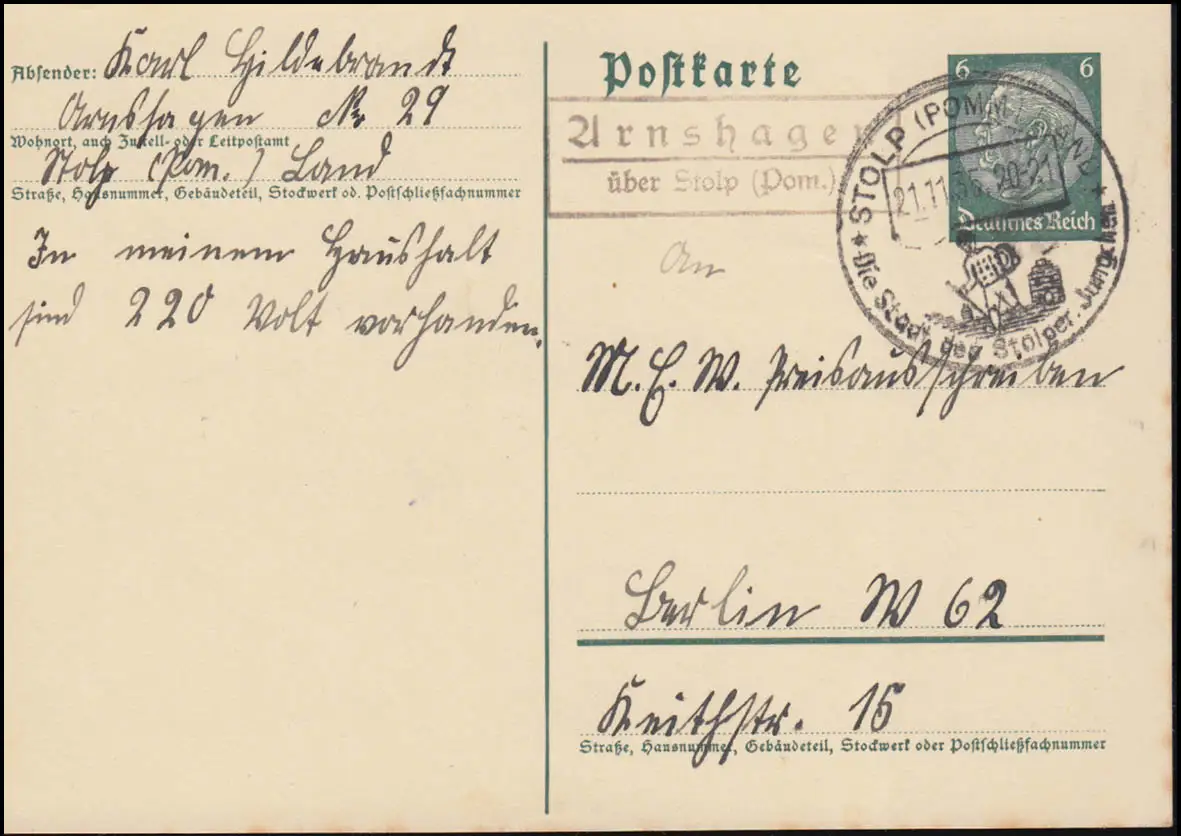 Absender: Karl Hildebrandt
Arnshagen Nr 29
Wohnort, auch Zustell- oder Leitpostamt
Stolp (Pom.) Land
Straße, Hausnummer, Gebäudeteil, Stockwerk od. Postschließfachnummer
In meinem Haushalt
sind 220 Volt vorhanden.
Postkarte
6 6
Deutsches Reich
Arnshagen
über Stolp (Pom.)
STOLP (POMM)
21.11.35. 20-21
Die Stadt der Stolper Jungchen
An
M. E. W. Preisausschreiben
Berlin W 62
Keithstr. 15
Straße, Hausnummer, Gebäudeteil, Stockwerk oder Postschließfachnummer